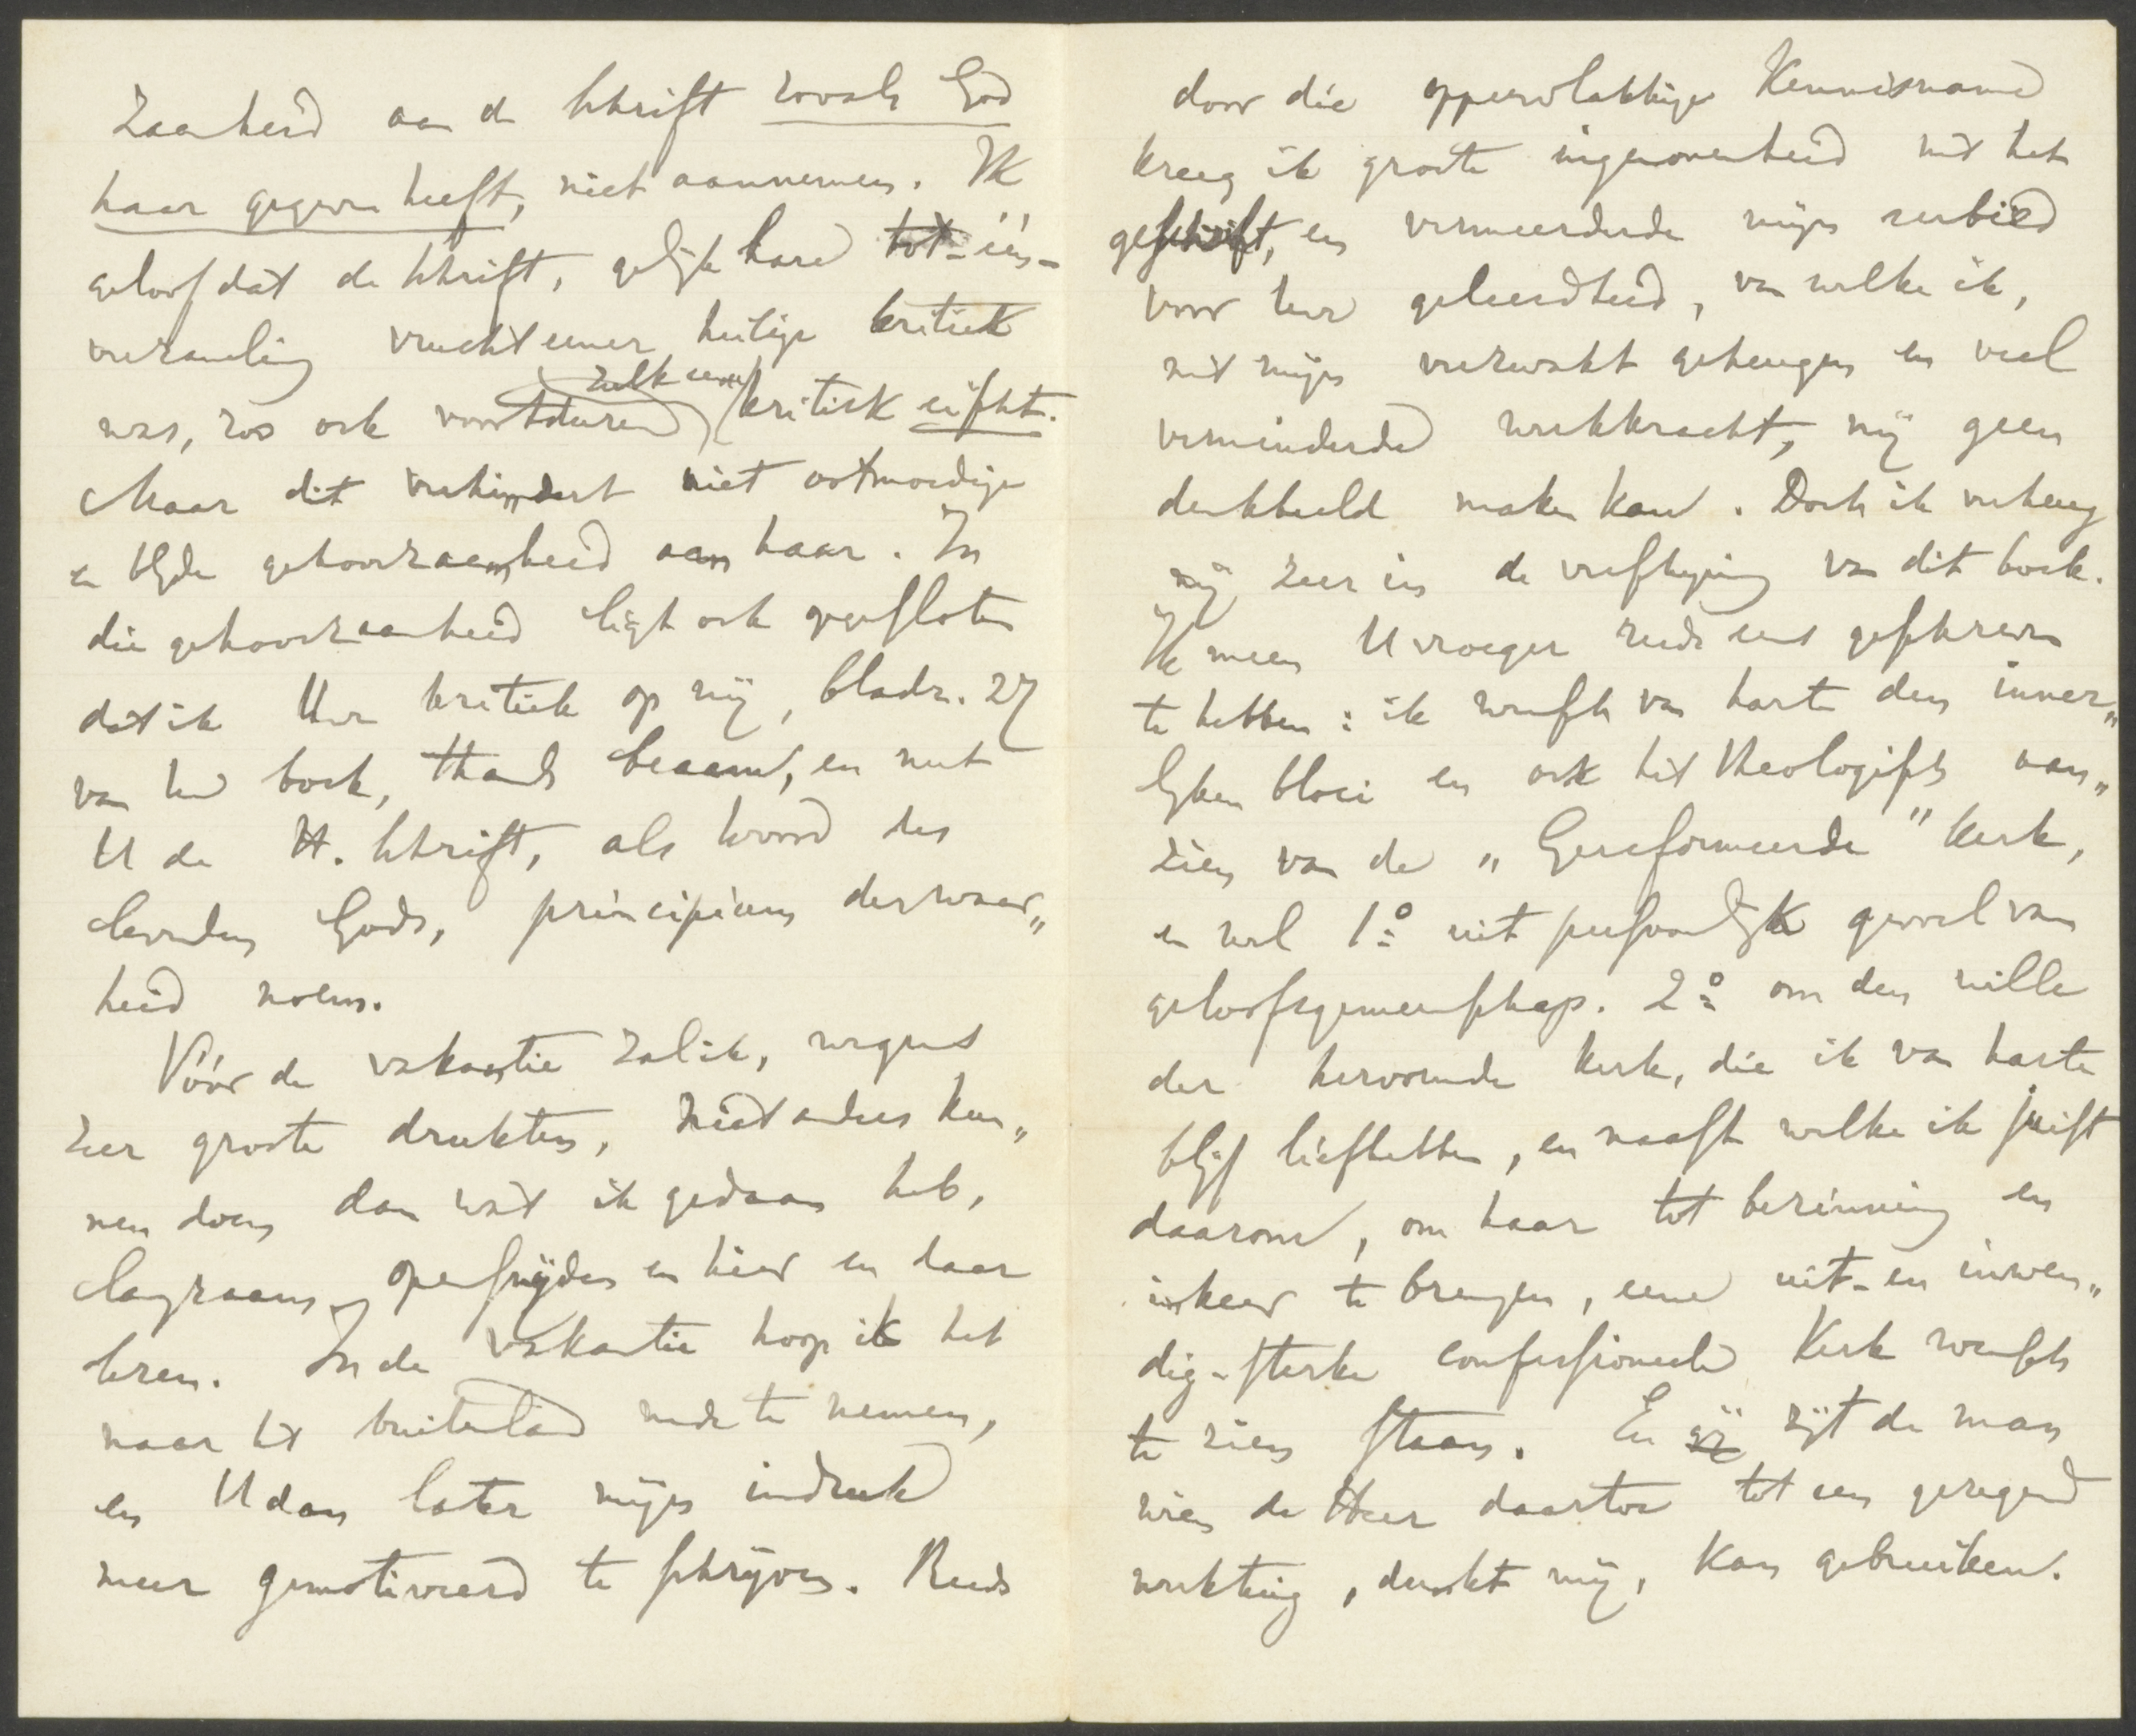 zaamheid aan de Schrift zooals God
haar gegeven heeft, niet aannemen. Ik
geloof dat de Schrift, gelijk hare tot-één-
verzameling vrucht eener heilige kritiek
was, zoo ook voortdurend zulk eene kritiek eischt.
Maar dit verhindert niet ootmoedige
en blijde gehoorzaamheid aan haar. In
die gehoorzaamheid ligt ook opgesloten
dat ik Uwe kritiek op mij, bladz. 27
van Uw boek, thans beaam, en met
U de H. Schrift, als woord des
levenden Gods, principium der waar„
heid noem.
Vóór de vakantie zal ik, wegens
zeer groote drukten, niet anders kun„
nen doen dan wat ik gedaan heb,
langzaam opensnijden en hier en daar
lezen. In de vakantie hoop ik het
naar het buitenland mede te nemen,
en U dan later mijn indruk
meer gemotiveerd te schrijven. Reeds
door die oppervlakkige kennisname
kreeg ik groote ingenomenheid met het
geschrift, en vermeerderde mijn eerbied
voor Uwe geleerdheid, van welke ik,
met mijn verzwakt geheugen en veel
verminderde werkkracht, mij geen
denkbeeld maken kan. Doch ik verheug
mij zeer in de verschijning van dit boek.
Ik meen U vroeger reeds eens geschreven
te hebben: ik wensch van harte den inner„
lijken bloei en ook het theologisch aan„
zien van de „Gereformeerde" Kerk,
en wel 1º uit persoonlijk gevoel van
geloofsgemeenschap. 2º om den wille
der hervormde Kerk, die ik van harte
blijf liefhebben, en naast welke ik juist
daarom, om haar tot bezinning en
inkeer te brengen, eene uit- en inwen„
dig-sterke confessioneele Kerk wensch
te zien staan. En gij zijt de man
wien de Heer daartoe tot een gezegend
werktuig, dunkt mij, kan gebruiken.